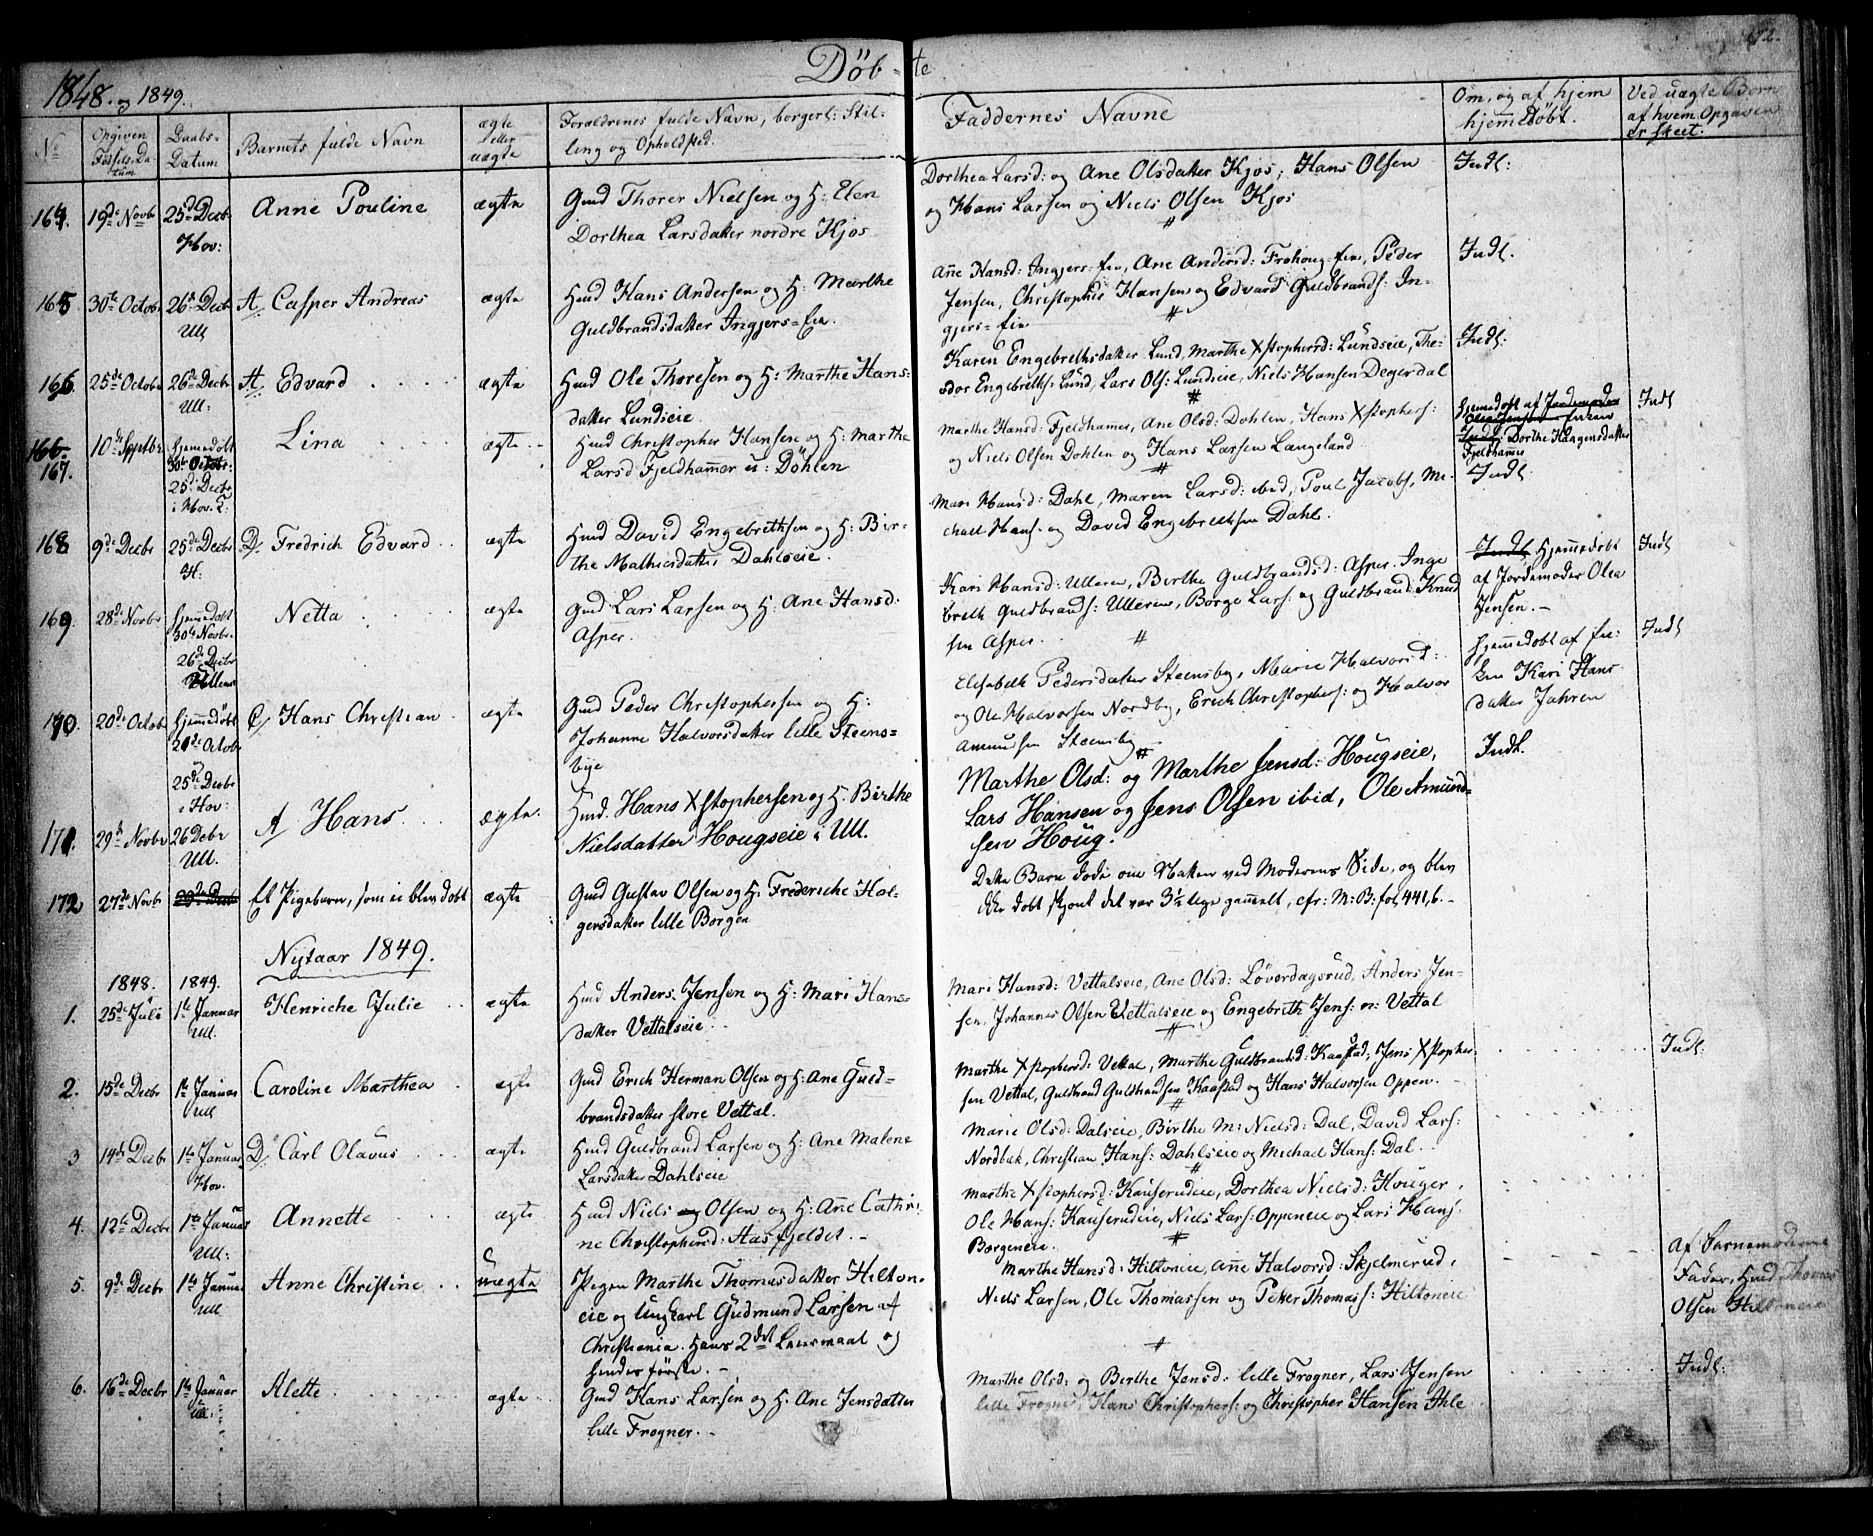 172.
Döb-te
1848. og 1849.
No
Opgiven Fødsels-Datum
Daabs-Datum
Barnets fulde Navn
ægte eller uægte
Forældrenes fulde Navn, borgerl: Stilling og Opholdsted.
Faddernes Navne
Om, og af hvem hjemmedöbt.
Ved uægte Börn af hvem Opgaven er skeet.
164. 19de Novbr 25de Decbr Hov: Anne Pouline ægte
Gmd Thorer Nielsen og H: Elen
Dorthea Larsdatter nordre Kjos
Dorthea Larsd: og Ane Olsdatter Kjos, Hans Olsen
og Hans Larsen og Niels Olsen Kjos
Indl:
165 30te Octobr 26de Decbr Ull A, Casper Andreas ægte
Hmd Hans Andersen og H: Marthe
Guldbrandsdatter Ingjers=eie.
Ane Hansd: Ingjers=eie, Ane Andersd: Frohoug=eie, Peder
Jensen, Christopher Hansen og Edvard Guldbrands: In-
gjers=eie
Indl.
166 25de Octobr 26de Decbr Ull: A, Edvard ægte
Hmd Ole Thoresen og H: Marthe Hans-
datter Lundseie
Karen Engebrethsdatter Lund, Marthe Xstophersd: Lundseie, The-
odor Engebreths: Lund, Lars Ols: Lundseie, Niels Hansen Degerdal
Indl:
166. 167. 10de Septbr hjemmedöbt 30te Octobr: 25de Decbr i Hov. K: Lina ægte
Hmd Christopher Hansen og H: Marthe
Larsd: Fjeldhammer u: Döhlen
Marthe Hansd: Fjeldhamer, Ane Olsd: Dohlen, Hans Xstophers:
og Niels Olsen Dohlen og Hans Larsen Langeland
Hjemedöbt af Jordemoder
Olea Jensen Enken
Indl: Dorthe Haagensdatter
Fjeldhamer
Indl
168 9de Decbr 25de Decbr H: D, Fredrich Edvard ægte
Hmd David Engebrethsen og H: Bir-
the Mathisdatter Dahlseie.
Mari Hansd: Dahl, Maren Larsd: ibid, Poul Jacobs, Mi-
chael Hans: og David Engebrethsen Dahl.
Indl:
169. 28de Novbr hjemmedöbt 30te Novbr. 26de Decbr Ullensa Netta ægte
Gmd Lars Larsen og H: Ane Hansd.
Asper.
Kari Hansd: Ulleren, Birthe Guldbrandsd: Asper. Inge
breth Guldbrands: Ulleren, Borge Lars: og Guldbrand Knud
sen Asper.
Indl Hjemmedöbt
af Jordemoder Olea
Jensen. -
Indl
170. 20de Octobr hjemmedöbt 21de Octobr 25de Decbr i Hov: C, Hans Christian ægte
Gmd Peder Christophersen og H:
Johanne Halvorsdatter lille Steens-
bye
Elisabeth Pedersdatter Steensby, Marie Halvorsd:
og Ole Halvorsen Nordby, Erich Christophers: og Halvor
Amunsen Steensby
hjemmedöbt af En-
ken Kari Hans
datter Jahren
Indl
171. 29de Novbr 26 Decbr Ull. A, Hans ægte.
Hmd. Hans Xstophersen og H. Birthe
Nielsdatter Hougseie i Ull.
Marthe Olsd: og Marthe Jensd: Hougseie,
Lars Hansen og Jens Olsen ibid, Ole Amund-
sen Houg.
Indl.
172 27de Novbr Et Pigebarn, som ei blev döbt ægte
Gmd Gustav Olsen og H: Frederiche Hol-
gersdatter lille Borgen
Dette Barn döde om Natten ved Moderens Side, og blev
ikke döbt skjönt det var 3½ Uge gammelt, cfr: M: B: fol 441, 6. -
Nytaar 1849.
1848. 1849.
1. 25de Juli 1te Januar Ull. Henriche Julie ægte
Hmd Anders Jensen og H: Mari Hans-
datter Vettalseie
Mari Hansd: Vettalseie, Ane Olsd: Løverdagsrud, Anders Jen-
sen, Johannes Olsen Vettalseie og Engebreth Jens: n: Vettal
2. 15de Decbr 1te Januar Ull Caroline Marthea ægte
Gmd Erich Herman Olsen og H: Ane Guld-
brandsdatter store Vettal.
Marthe Xstophersd: Vettal, Marthe Guldbrandsd: Kaastad, Jens Xstopher-
sen Vettal, Guldbrand Guldbrandsen Kaastad og Hans Halvorsen Oppen.
Indl:
3 14de Decbr 1te Januar Hov. D, Carl Olavus ægte
Hmd Guldbrand Larsen og H: Ane Malene
Larsdatter Dahlseie
Marie Olsd: Dalseie, Birthe M: Nielsd: Dal, David Lars:
Nordbak, Christian Hans: Dahlseie og Michael Hans: Dal.
4. 12te Decbr 1te Januar Ull: Annette ægte
Hmd Niels Olsen og H: Ane Cathri-
ne Christophersd: Hasfjeldet. -
Marthe Xstophersd: Kauserudeie, Dorthea Nielsd: Houger,
Ole Hans: Kauserudeie, Niels Lars: Oppeneie og Lars Hans:
Borgeneie.
5. 9de Decbr 1te Januar Ull Anne Christine uægte
Pigen Marthe Thomasdatter Hilton-
eie og Ungkarl Gudmund Larsen af
Christiania. Hans 2det Leiermaal og
hendes første. -
Marthe Hansd: Hiltoneie, Ane Halvorsd: Skjelmerud,
Niels Larsen, Ole Thomassen og Petter Thomas: Hiltoneie
Af Barnemoderens
Fader, Hmd Thomas
Olsen Hiltoneie
6. 16de Decbr 1te Januar Ull. Alette ægte
Gmd Hans Larsen og H. Ane Jensdatter
lille Frogner. -
Marthe Olsd: og Birthe Jensd: lille Frogner, Lars Jensen
lille Frogner, Hans Christophers: og Christopher Hansen Ihle
Indl: